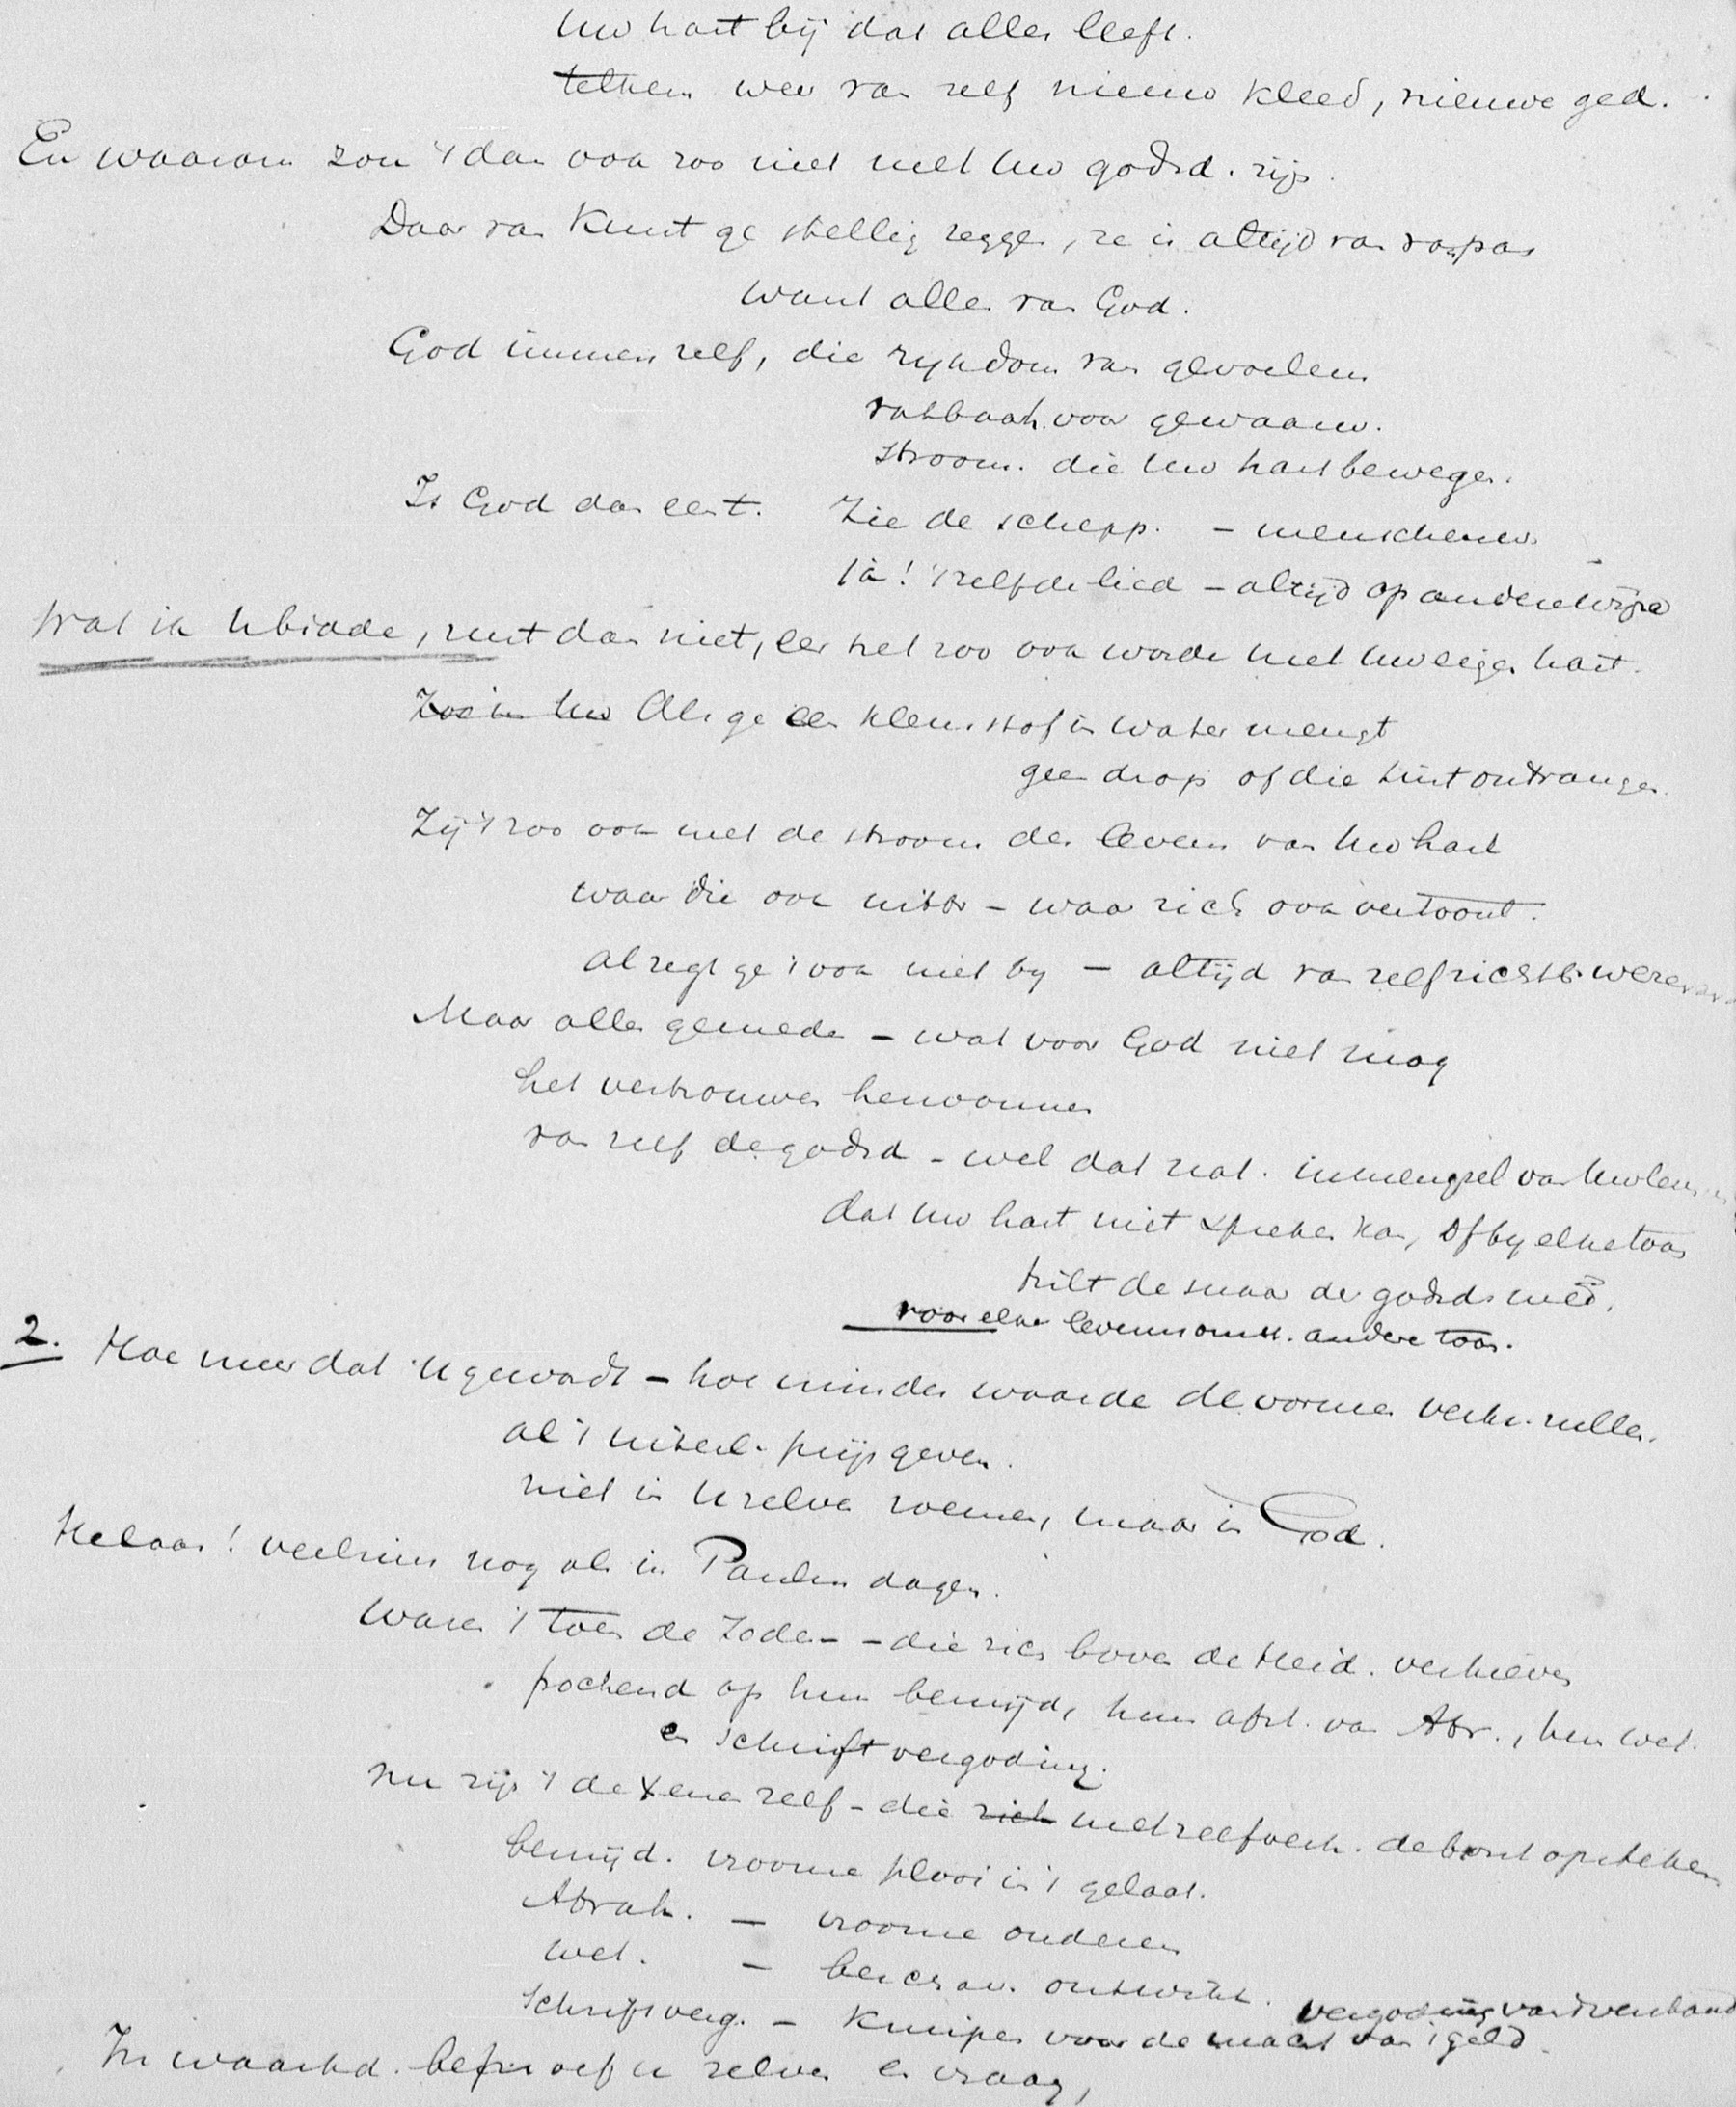 Uw hart bij dat alles leeft.
telkens weer van zelf nieuw kleed, nieuwe ged.
En waarom zou 't dan ook zoo niet met Uw godsd. zijn.
Daar van kunt ge stellig zeggen, ze is altijd van pas
want alles van God.
God immers zelf, die rijkdom van gevoelens
vatbaarh. voor gewaarw.
stroom. die Uw hart bewegen.
Is God dan eent. Zie de schepp. – menschenw.
Ja! 't zelfde lied – altijd op andere wijze
Wat ik U bidde, rust dan niet, eer het zoo ook worde met Uw eigen hart.
Zoo in Uw Als ge een kleurstof in water mengt
geen drop of die tint ontvangen.
Zij 't zoo ook met de stroom des levens van Uw hart
waar die ook uitstr – waar zich ook vertoont.
al zegt ge 't ook niet by – altijd van zelf zichtb. wezen
Maar alles gemeden – wat voor God niet mag
het vertrouwen herwonnen
van zelf de godsd – wel dat nat. inmengsel van Uw leven
dat Uw hart niet spreken kan, Of by elke toon
trilt de snaar der godsd. meê.
voor elke levensomst. andere toon.
2. Hoe meer dat U gewordt – hoe minder waarde de vormen verkr. zullen.
al 't uiterl. prijs geven.
niet in U zelven roemen, maar in God.
Helaas! veelzins nog als in Paulus dagen.
Waren 't toen de Joden – die zich boven de Heid. verhieven
pochend op hun besnijd, hun afst. van Abr., hun wet.
en schriftvergoding.
nu zijn 't de Xenen zelf – die zich met zelfverh. de borst opsteken
besnijd. vroome plooi in 't gelaat.
Abrah. – vroome ouderen
wet. – beschav. ontwikk.
Schriftverg. – knipen voor de macht van 't geld. vergoding van 't verstand
In waarhd. beproef u zelven en vraag,